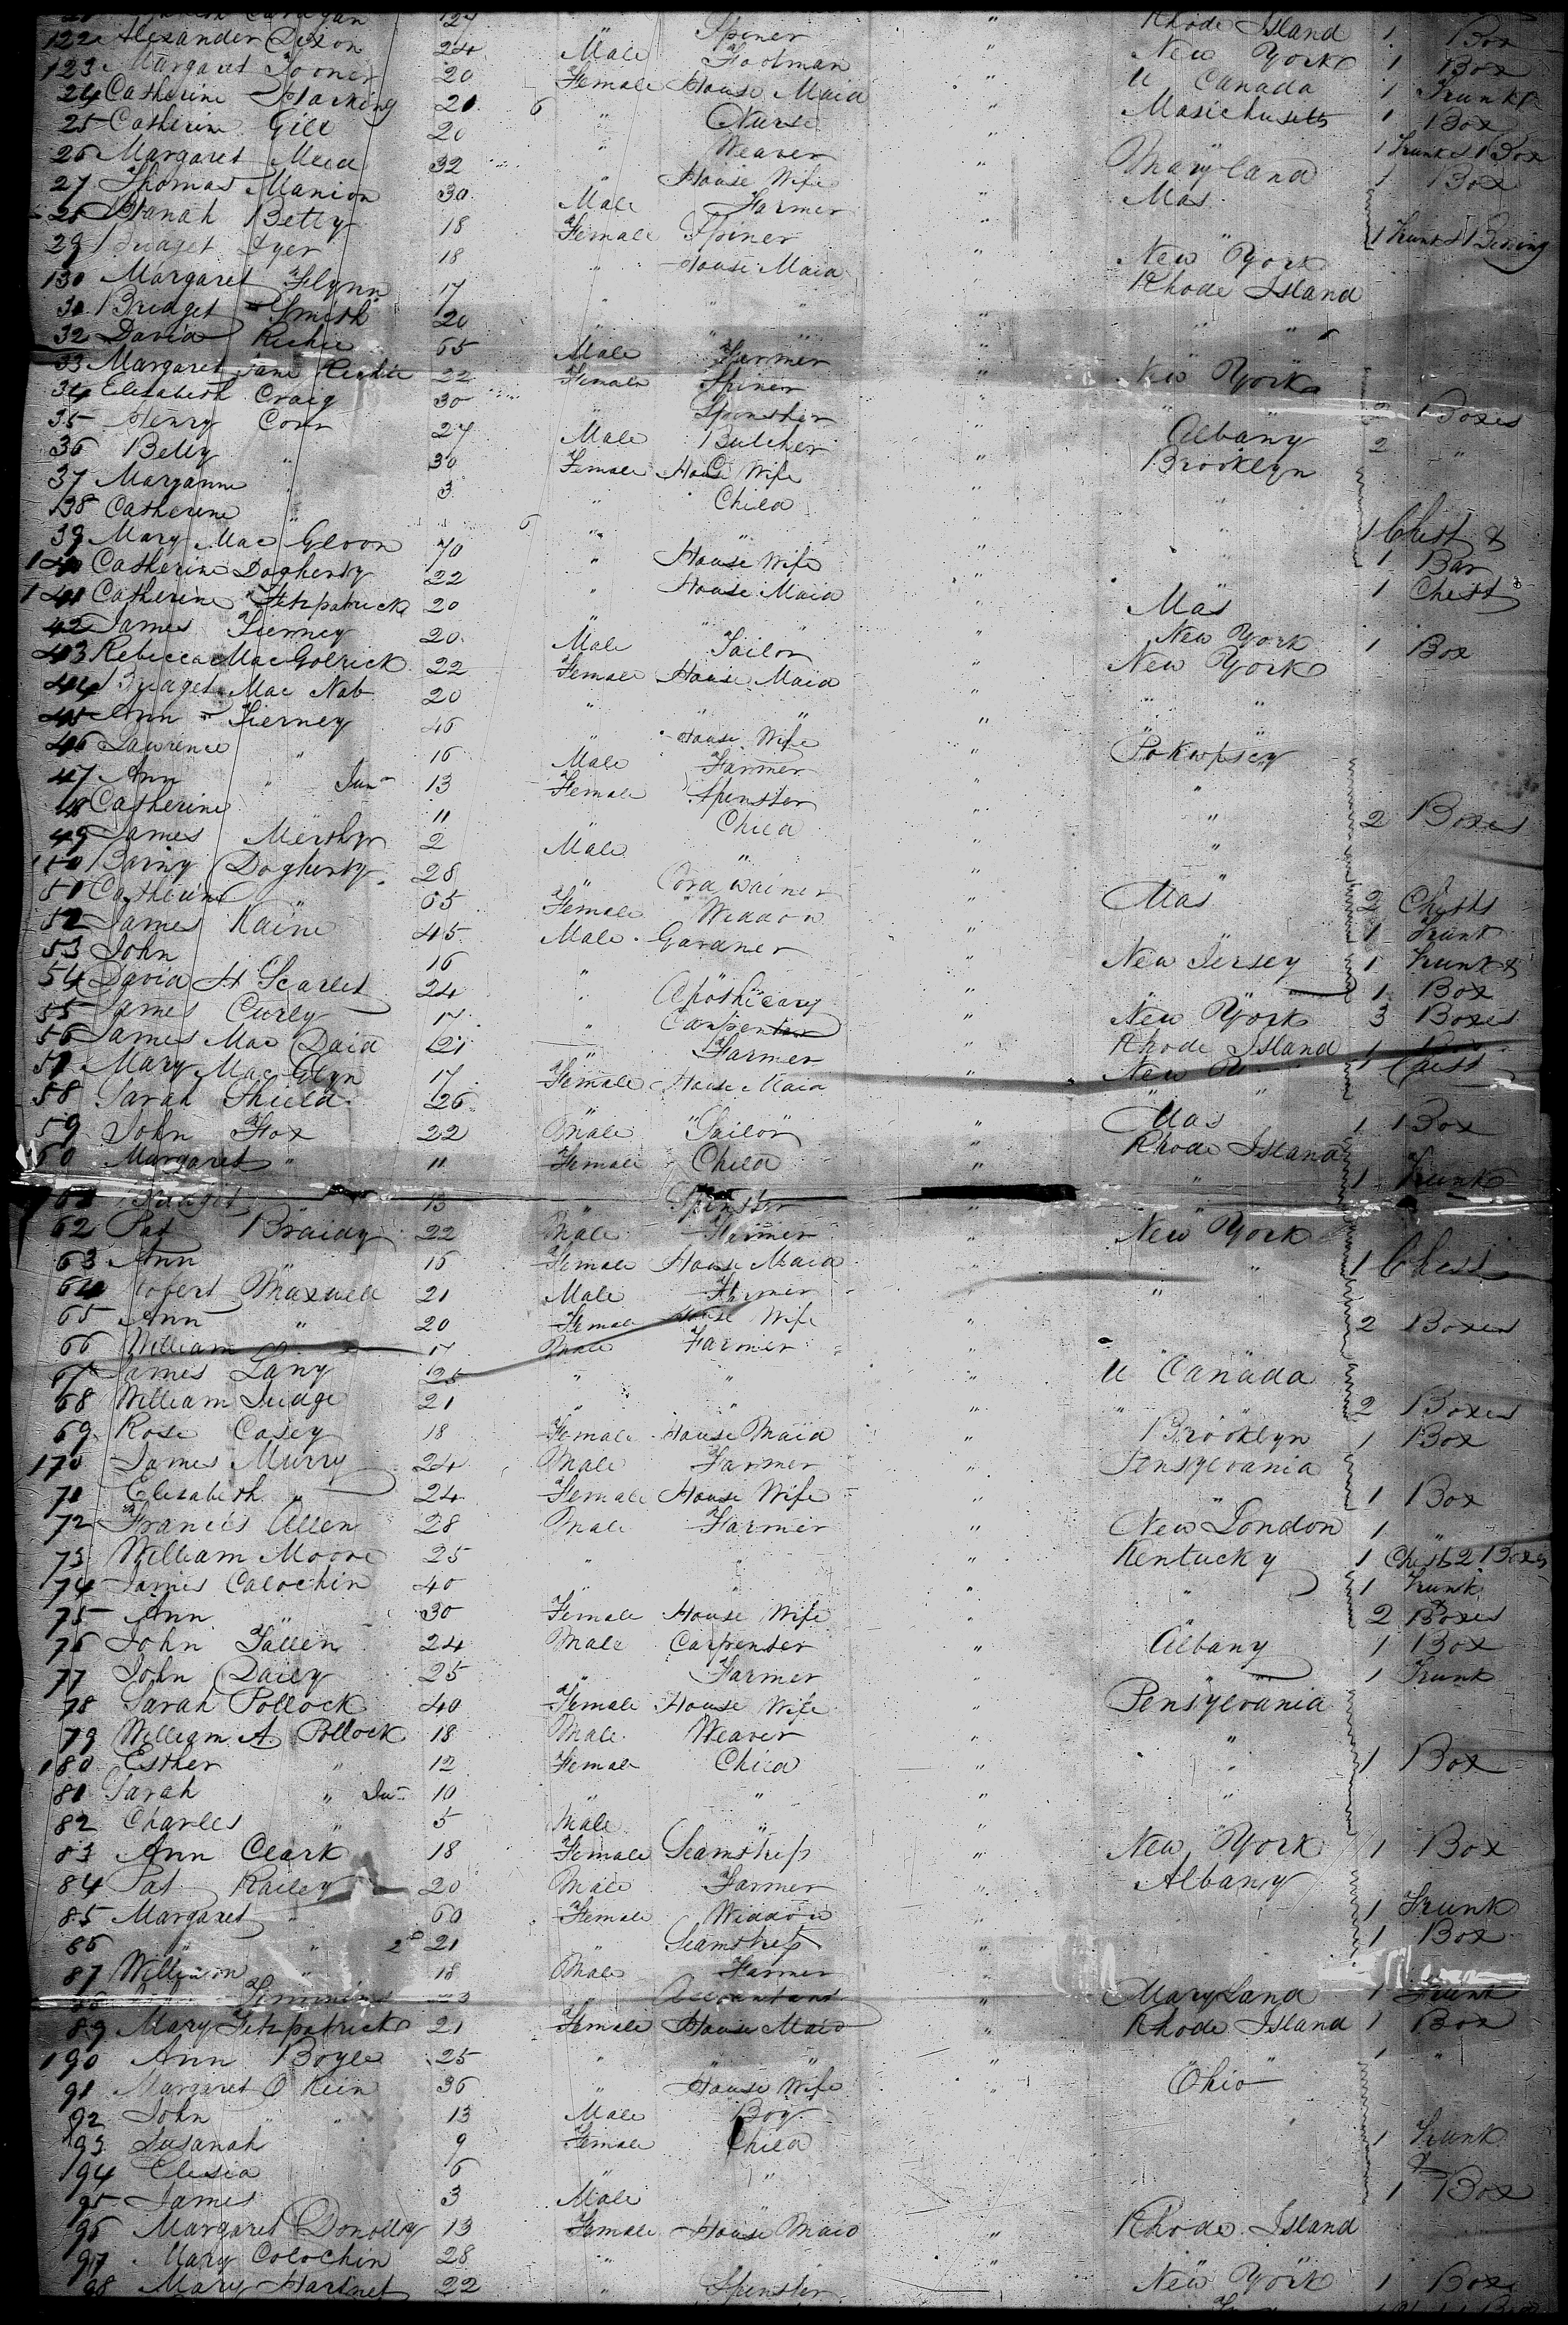 122 Alexander Dixon 24 Male Footman " New York 1 Box
123 Margaret Tooner 20 Female House Maid " U Canada 1 Trunk
24 Catherine Harking 21 " Nurse " Masichusetts 1 Box
25 Catherine Gill 20 " Weaver 1 Trunk & 1 Box
26 Margaret Mead 32 " House Wife " Maryland 1 Box
27 Thomas Manion 30 Male Farmer " Mas
28 Hanah Betty 18 Female Spiner " " 1 Trunk &
29 Bridget Dyer 18 " House Maid " New York
130 Margaret Flynn 17 " " " Rhode Island
31 Bridget Smith 20 " " " " "
32 David Richie 65 Male Farmer "
33 Margaret Jane Richie 22 Female Spiner " New York
34 Elisabeth Craig 30 " Spinster " " 2 Boxes
35 Henry Conr 27 Male Butcher " Albany 2 "
36 Betty " 30 Female House Wife " Brooklyn
37 Maryann " 3 " Child " "
138 Catherine " 6 " " "
39 Mary Mac Gloon 70 " House Wife " " 1 Chest & 1
140 Catherine Dogherty 22 " House Maid " 1 Chest
141 Catherine Fitzpatrick 20 " " " Mas
42 James Tierney 20 Male Tailor " New York 1 Box
43 Rebecca Mac Golrick 22 Female House Maid " New York
44 Bridget Mac Nab 20 " " " " "
45 Ann Tierney 46 " House Wife "
46 Lawrence " 16 Male Farmer " Pokwpsey
47 Ann " Jun 13 Female Spinster " "
48 Catherine 11 " Child " " 2 Boxes
49 James Merthyr 2 Male " " "
150 Barny Dogherty 28 " Cord wainer "
51 Catherine " 65 Female Widdow " Mas 2 Chests
52 James Kaine 45 Male Gardner " 1 Trunk
53 John 16 " " New Jersey 1 Trunk &
54 David H Scarlet 24 " Apothicary " " 1 Box
55 James Curly 17 " Carpenter " New York 3 Boxes
56 James Mac Daid 21 " Farmer " Rhode Island 1
57 Mary Mac Glyn 17 Female House Maid " New 1 Chest
58 Sarah Shield 26 " " " "
59 John Fox 22 Male Tailor " Mas 1 Box
60 Margaret " 11 Female Child " Rhode Island
61 Bridget 13 " Spinster " " 1 Trunk
62 Pat Braidy 22 Male Farmer " New York
63 Ann " 16 Female House Maid " " " 1 Chest
64 Robert Maxwell 21 Male Farmer " "
65 Ann " 20 Female House Wife 2 Boxes
66 William " 17 Male Farmer "
67 James Lany 25 " " " U Canada
68 William Judge 21 " " " " " 2 Boxes
69 Rose Casey 18 Female House Maid " Brooklyn 1 Box
170 James Murry 24 Male Farmer " Pensylvania
71 Elisabeth " 24 Female House Wife " " 1 Box
72 Francis Allen 28 Male Farmer " New London 1 "
73 William Moore 25 " " " Kentucky 1 Chest 2 Boxes
74 James Calochin 40 " " " " 1 Trunk &
75 Ann " 30 Female House Wife " 2 Boxes
76 John Fallen 24 Male Carpenter " Albany 1 Box
77 John Daily 25 " Farmer " " 1 Trunk
78 Sarah Pollock 40 Female House Wife " Pensylvania
79 William A Pollock 18 Male Weaver " "
180 Esther " 12 Female Child " " 1 Box
81 Sarah " Jun 10 " " " "
82 Charles " 5 Male " " "
83 Ann Clark 18 Female Seamstress " New York 1 Box
84 Pat Railey 20 Male Farmer " Albany
85 Margaret " 60 Female Widdow 1 Trunk
86 " " 2d 21 " Seamstress " 1 Box
87 William " 18 Male Farmer "
Simmins " Accountant Maryland 1 Trunk
89 Mary Fitzpatrick 21 Female House Maid " Rhode Island 1 Box
190 Ann Boyle 25 " " " " " 1 "
91 Margaret O Kein 36 " House Wife " Ohio
92 John " 13 Male Boy
93 Susanah 9 Female Child 1 Trunk
194 Elisia 6 " " &
95 James 3 Male " 1 Box
96 Margaret Donolly 13 Female House Maid " Rhode Island
97 Mary Colochin 28 " "
98 Mary Hartnet 22 " Spinster New York 1 Box